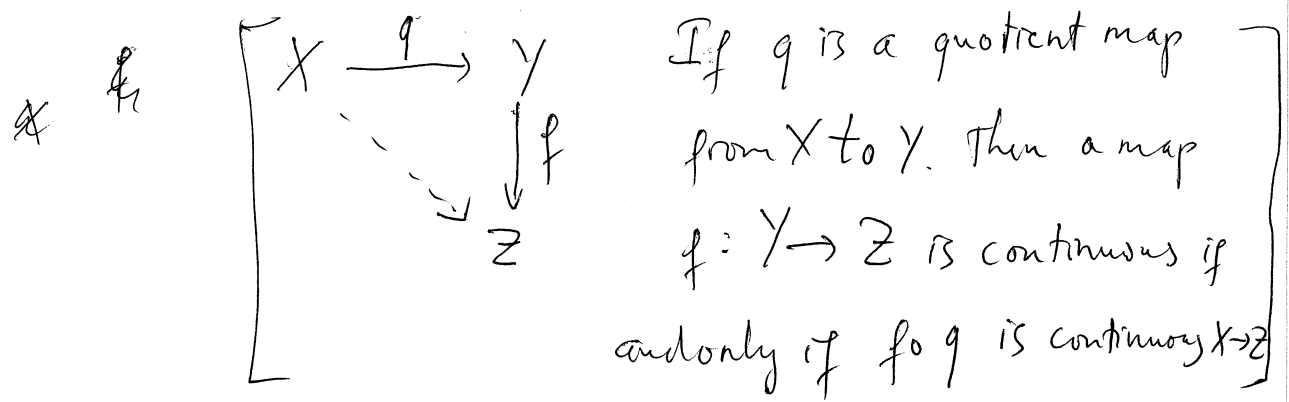 X q Y If q is a quotient map
f from X to Y. Then a map
Z f : Y → Z is continuous if
and only if f o q is continuous X→Z